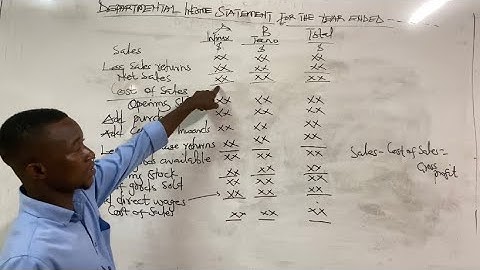 DEPARTMENTAL INCOME STATEMENT FOR THE YEAR ENDED -----
A B Total
Infinix Tecno
$ $ $
Sales xx xx xx
Less Sales returns xx xx xx
Net Sales xx xx xx
Cost of Sales
Opening St xx xx xx
Add purch xx xx xx
Add C Inwards xx xx xx
Le se returns xx xx xx
ds available xx xx xx
ing Stock xx xx xx
f goods Sold xx xx xx
d direct wages xx xx xx
Cost of Sales xx xx xx
Sales - Cost of Sales =
Gross
profit